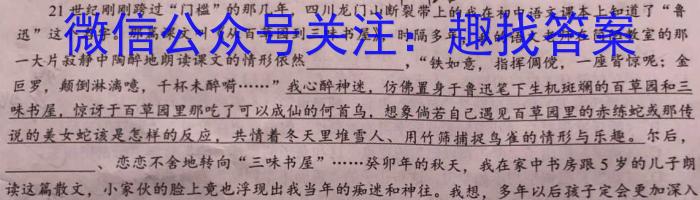 21 世纪刚刚跨过“门槛”的那几年,四川龙门山断裂带上的我在初中语文课本上知道了“鲁
迅”这
微信公众号关注:趣找答案
一大片寂静中陶醉地朗读课文的情形依然____________,“铁如意,指挥倜傥,一座皆惊呢;金
叵罗,颠倒淋漓噫,千杯未醉嗬……”我心醉神迷,仿佛置身于鲁迅笔下生机斑斓的百草园和三
味书屋,惊讶于百草园里那吃了可以成仙的何首乌,想象倘若自己遇见百草园里的赤练蛇或那传
说的美女蛇该是怎样的反应,共情着冬天里堆雪人、用竹筛捕捉鸟雀的情形与乐趣。尔后,
____________、恋恋不舍地转向“三味书屋”……癸卯年的秋天,我在家中书房跟 5 岁的儿子朗
读这篇散文,小家伙的脸上竟也浮现出我当年的痴迷和神往。我想,多年以后孩子定会更加深入